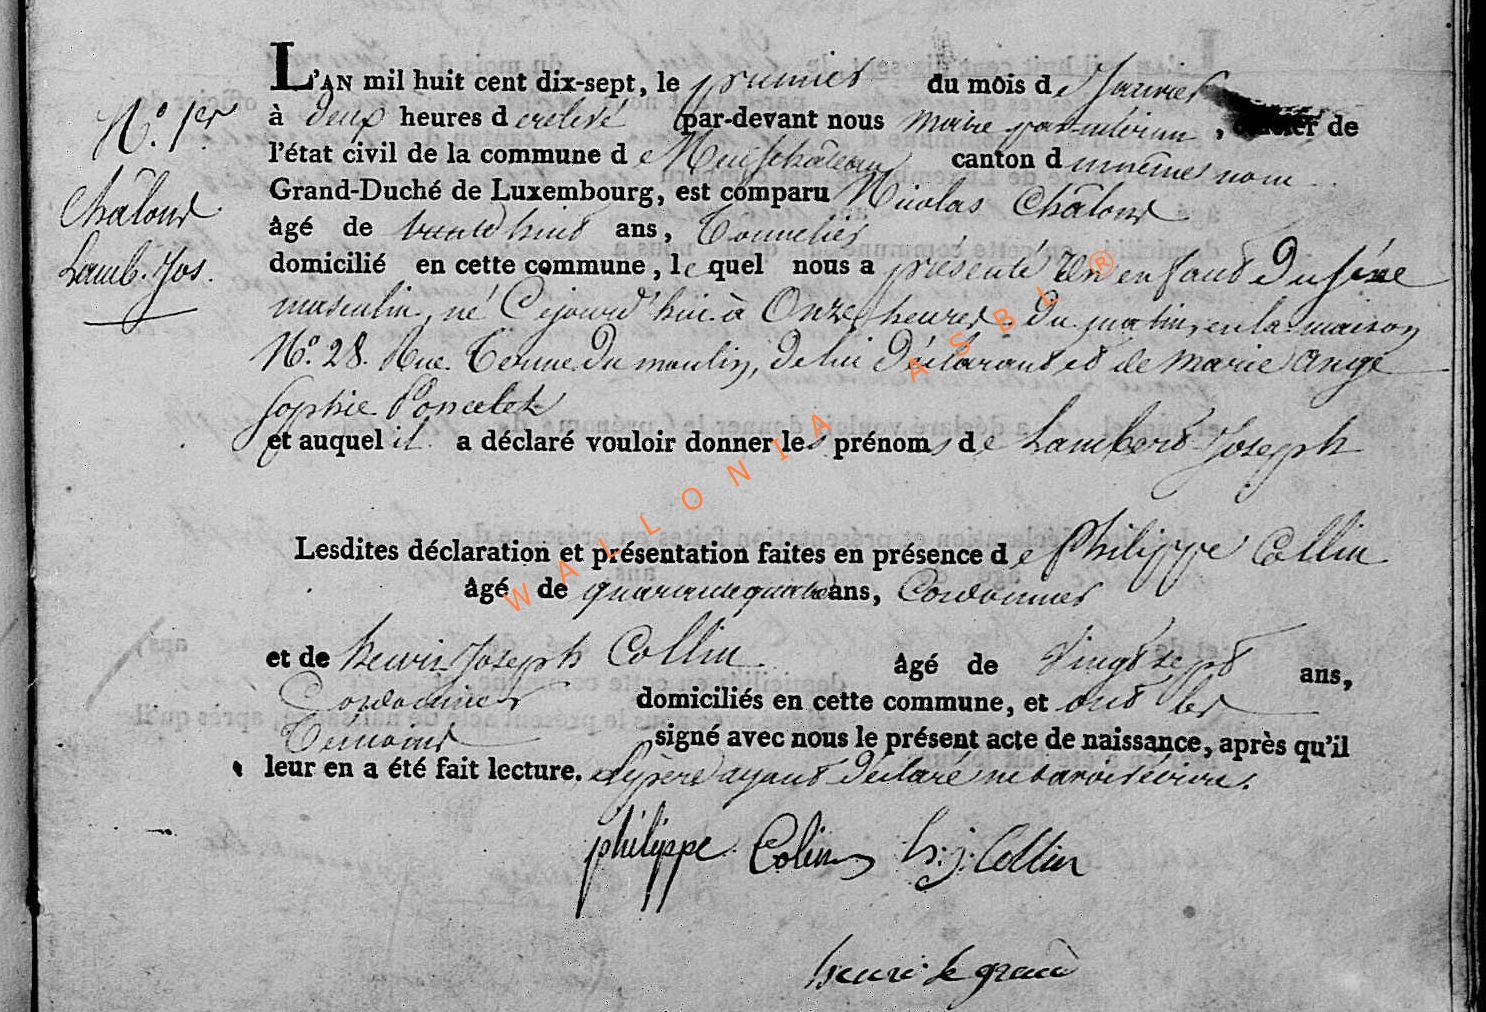 N.° 1er
Châlons
Lamb. Jos.
L'AN mil huit cent dix-sept, le premier du mois de Janvier
à deux heures de relevé par-devant nous maire par interim, officier de
l'état civil de la commune de Neufchâteau canton du même nom
Grand-Duché de Luxembourg, est comparu Nicolas Châlons
âgé de trente huit ans, Tonnelier
domicilié en cette commune, lequel nous a présenté un enfant du séxe
masculin, né Cejourd'hui à Onze heures du matin, en la maison
N.° 28. Rue Terme du moulin, de lui déclarant et de marie Ange
Sophie Poncelet
et auquel il a déclaré vouloir donner les prénoms de Lambert Joseph
Lesdites déclaration et présentation faites en présence de Philippe Collin
âgé de quarante quatre ans, Cordonnier
et de henri Joseph Collin âgé de vingt sept ans,
Cordonnier domiciliés en cette commune, et ont les
Témoins signé avec nous le présent acte de naissance, après qu'il
leur en a été fait lecture. le père ayant déclaré ne savoir écrire.
philippe Colin h: j: Collin
henri le grand
WALLONIA ASBL ®